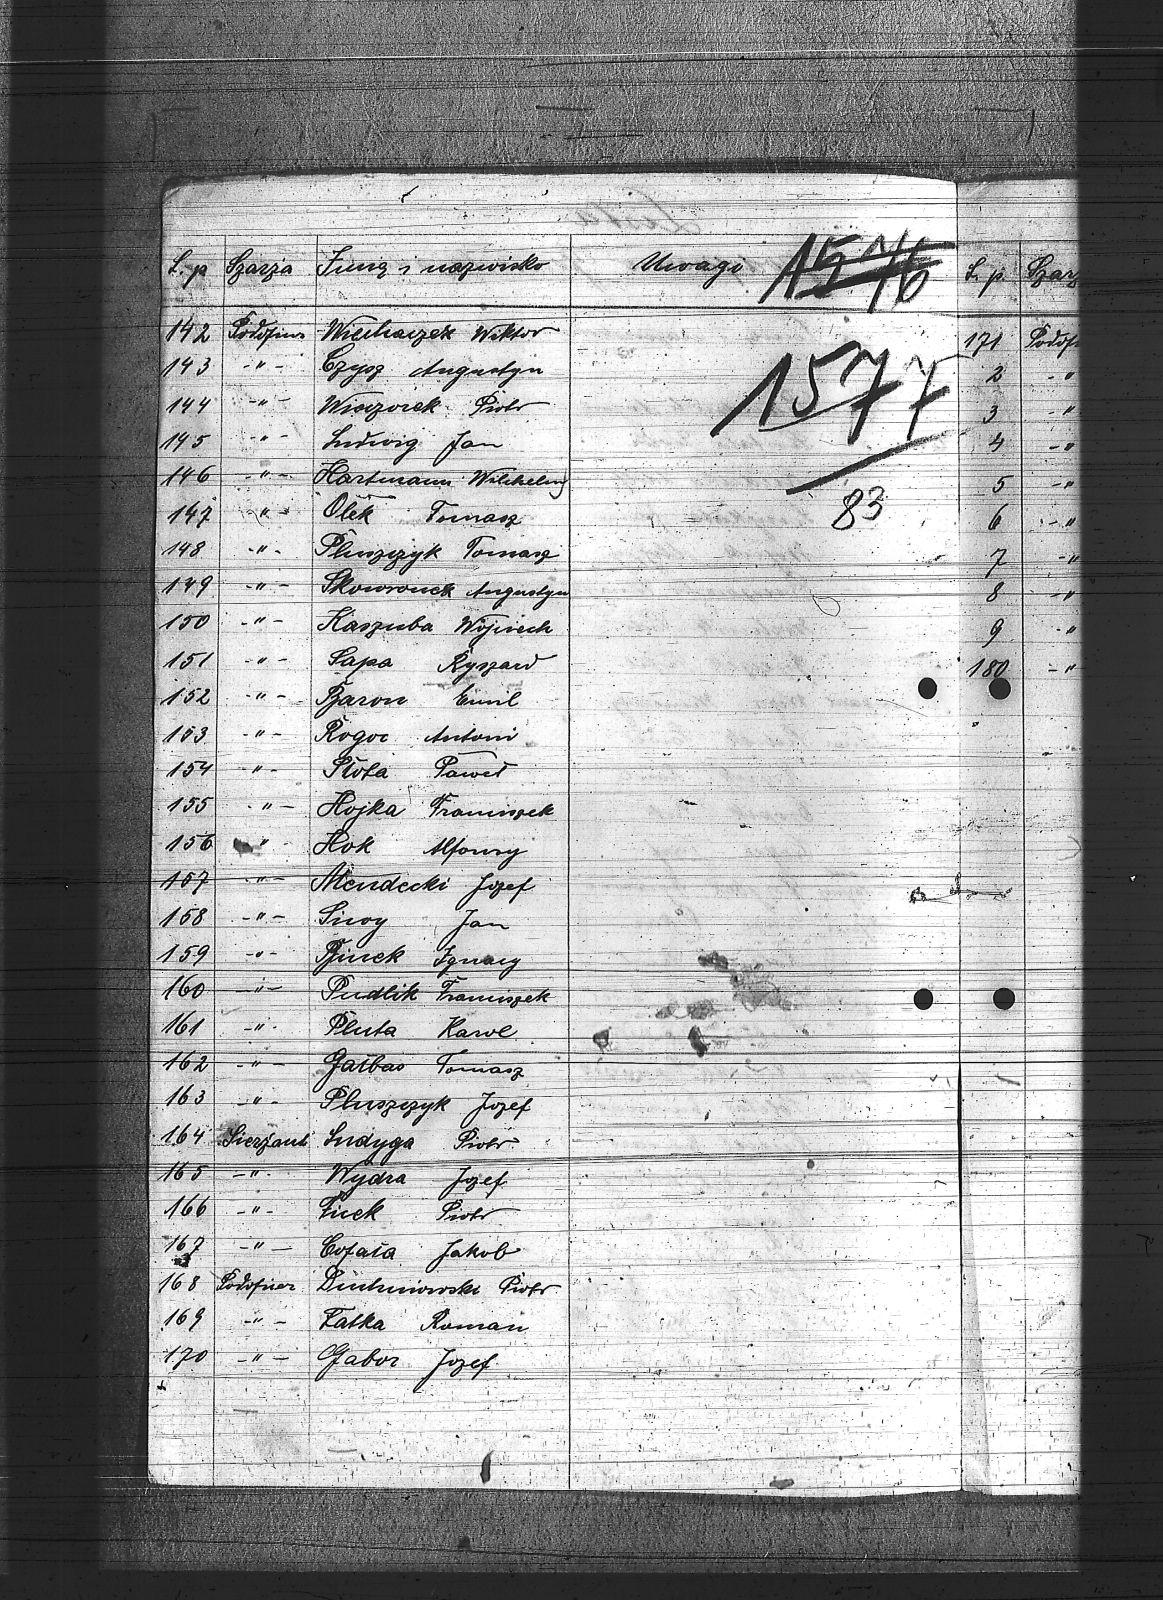 L. p Szarża Imię i nazwisko Uwagi
1576
1577
83
142 Podofice Wiechaczek Wiktor
143 -"- Czysz Augustyn
144 -"- Wieczorek Piotr
145 -"- Ludwig Jan
146 -"- Hartmann Wilchelm
147 -"- Olek Tomasz
148 -"- Pluszczyk Tomasz
149 -"- Skowronek Augustyn
150 -"- Kaszuba Wojciech
151 -"- Sapa Ryszard
152 -"- Baron Emil
153 -"- Rogoc Antoni
154 -"- Słota Paweł
155 -"- Hojka Franciszek
156 -"- Hok Alfonsy
157 -"- Mendecki Jozef
158 -"- Siwy Jan
159 -"- Ignacy
160 -"- Pudlik Franciszek
161 -"- Pluta Karol
162 -"- Garbas Tomasz
163 -"- Pluszczyk Jozef
164 Sierżant Indyga Piotr
165 -"- Wydra Jozef
166 -"- Piotr
167 -"- Cofała Jakob
168 Podoficer Piotr
169 -"- Fatka Roman
170 -"- Gabor Jozef
L. p. Szarż
171 Podofi
2 -"
3 -"
4 -"
5 -"
6 -"
7 -"
8 -"
9 -"
180 -"